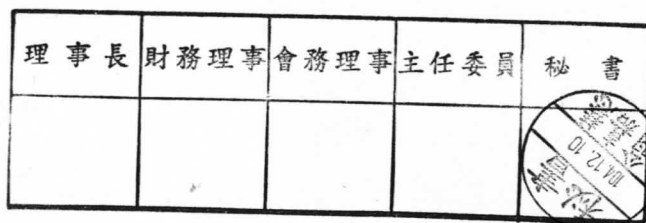 理事長 財務理事 會務理事 主任委員 秘書
秘書
104.12.10